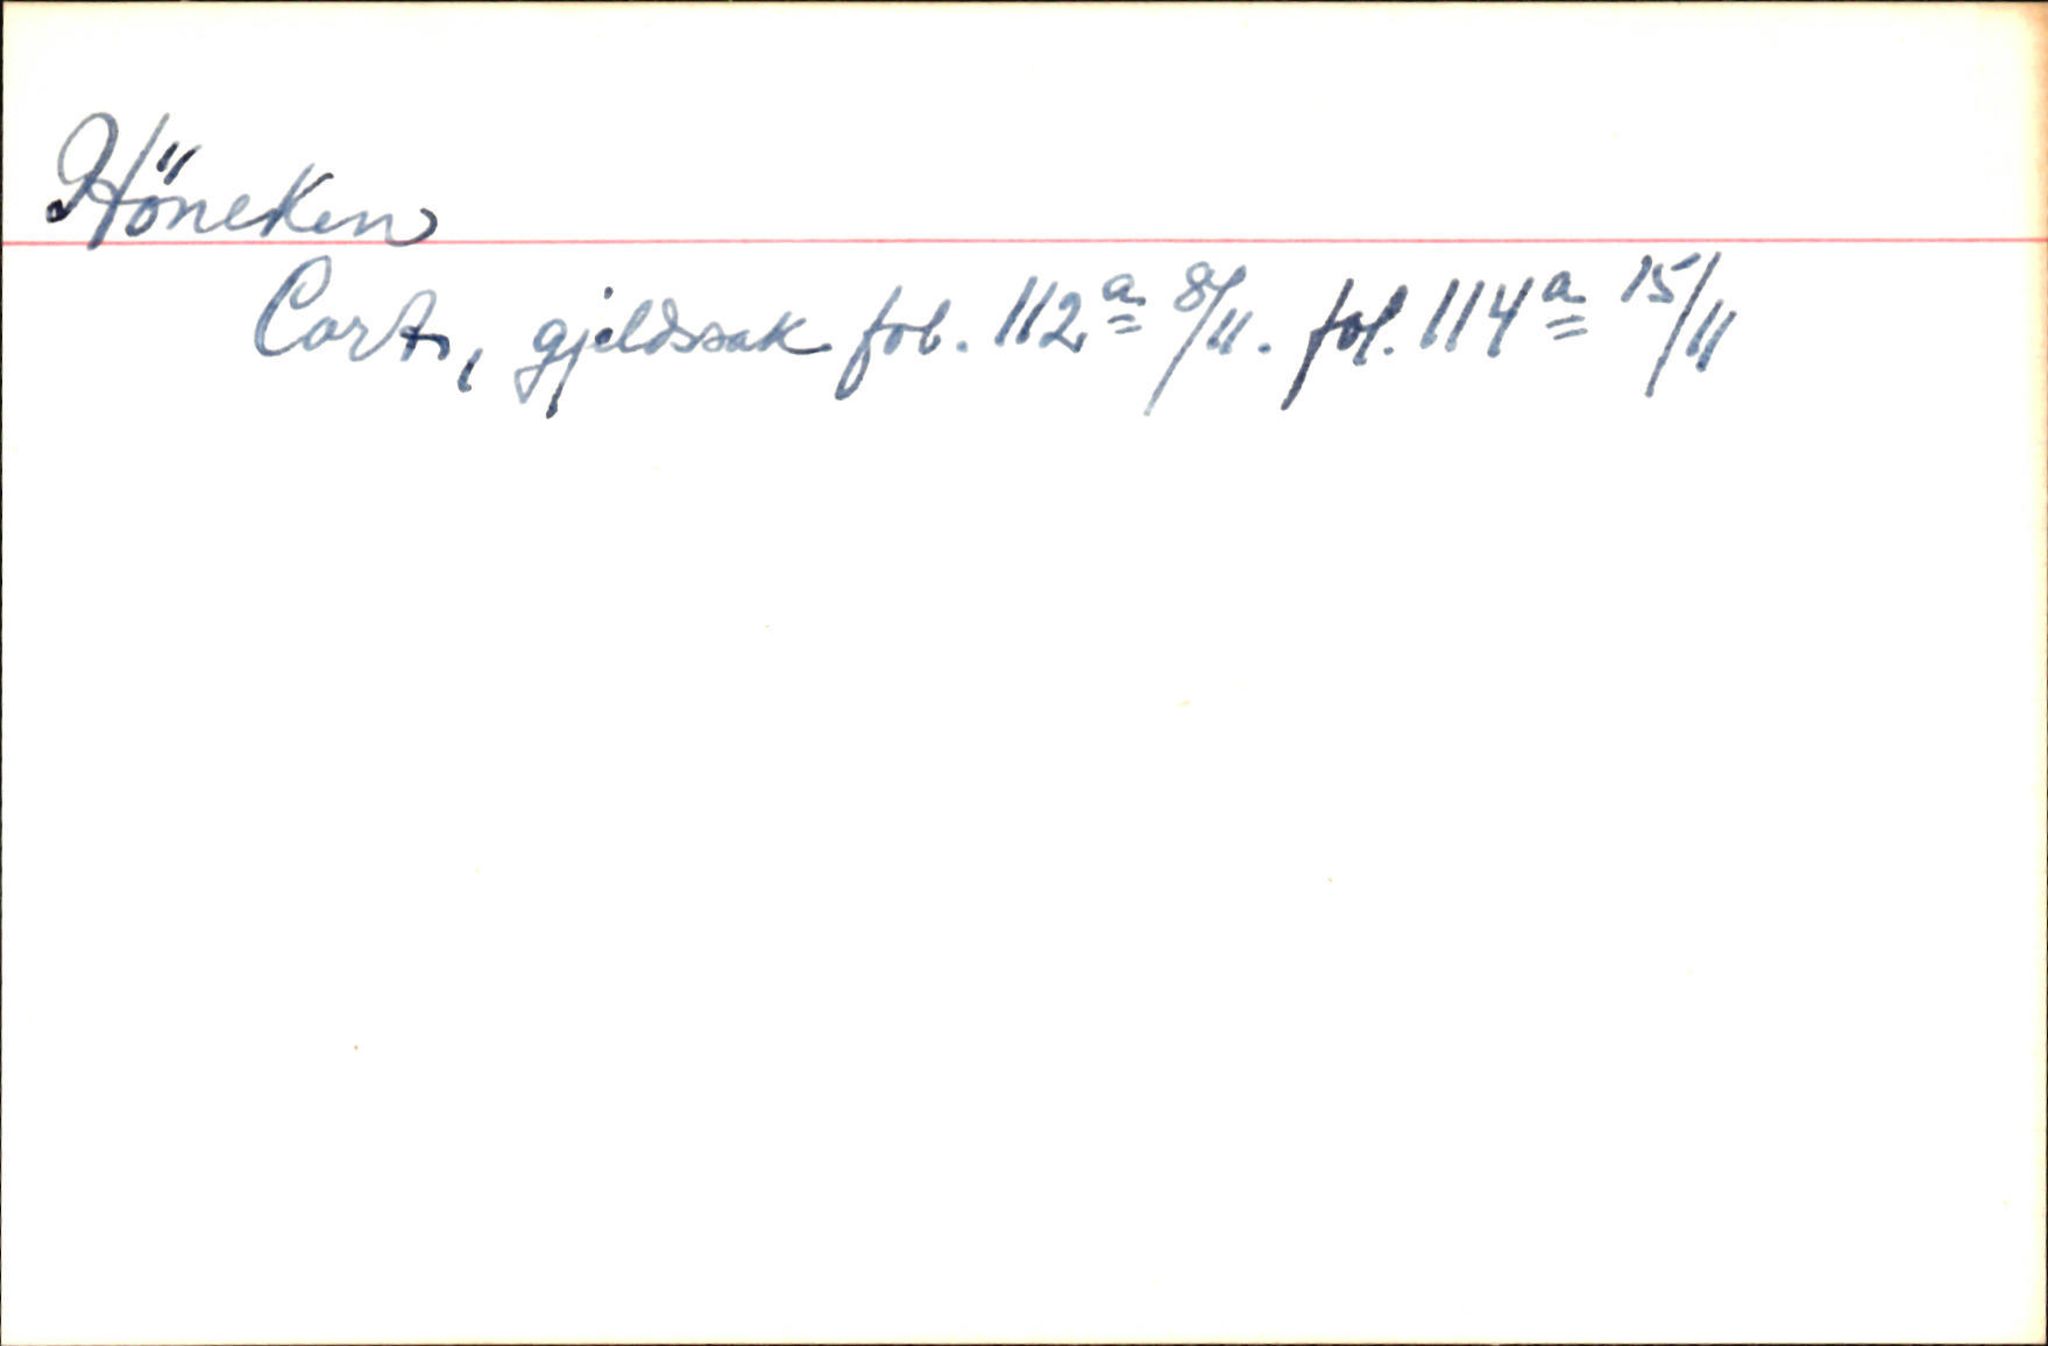 Höneken
Cort, gjeldssak fol. 112ª 8/11. fol. 114ª 15/11